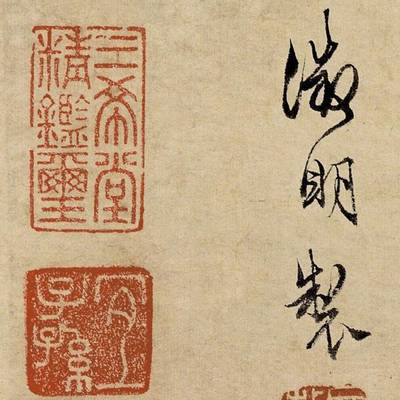 徵明製
三希堂
精鑑璽
宜子孫